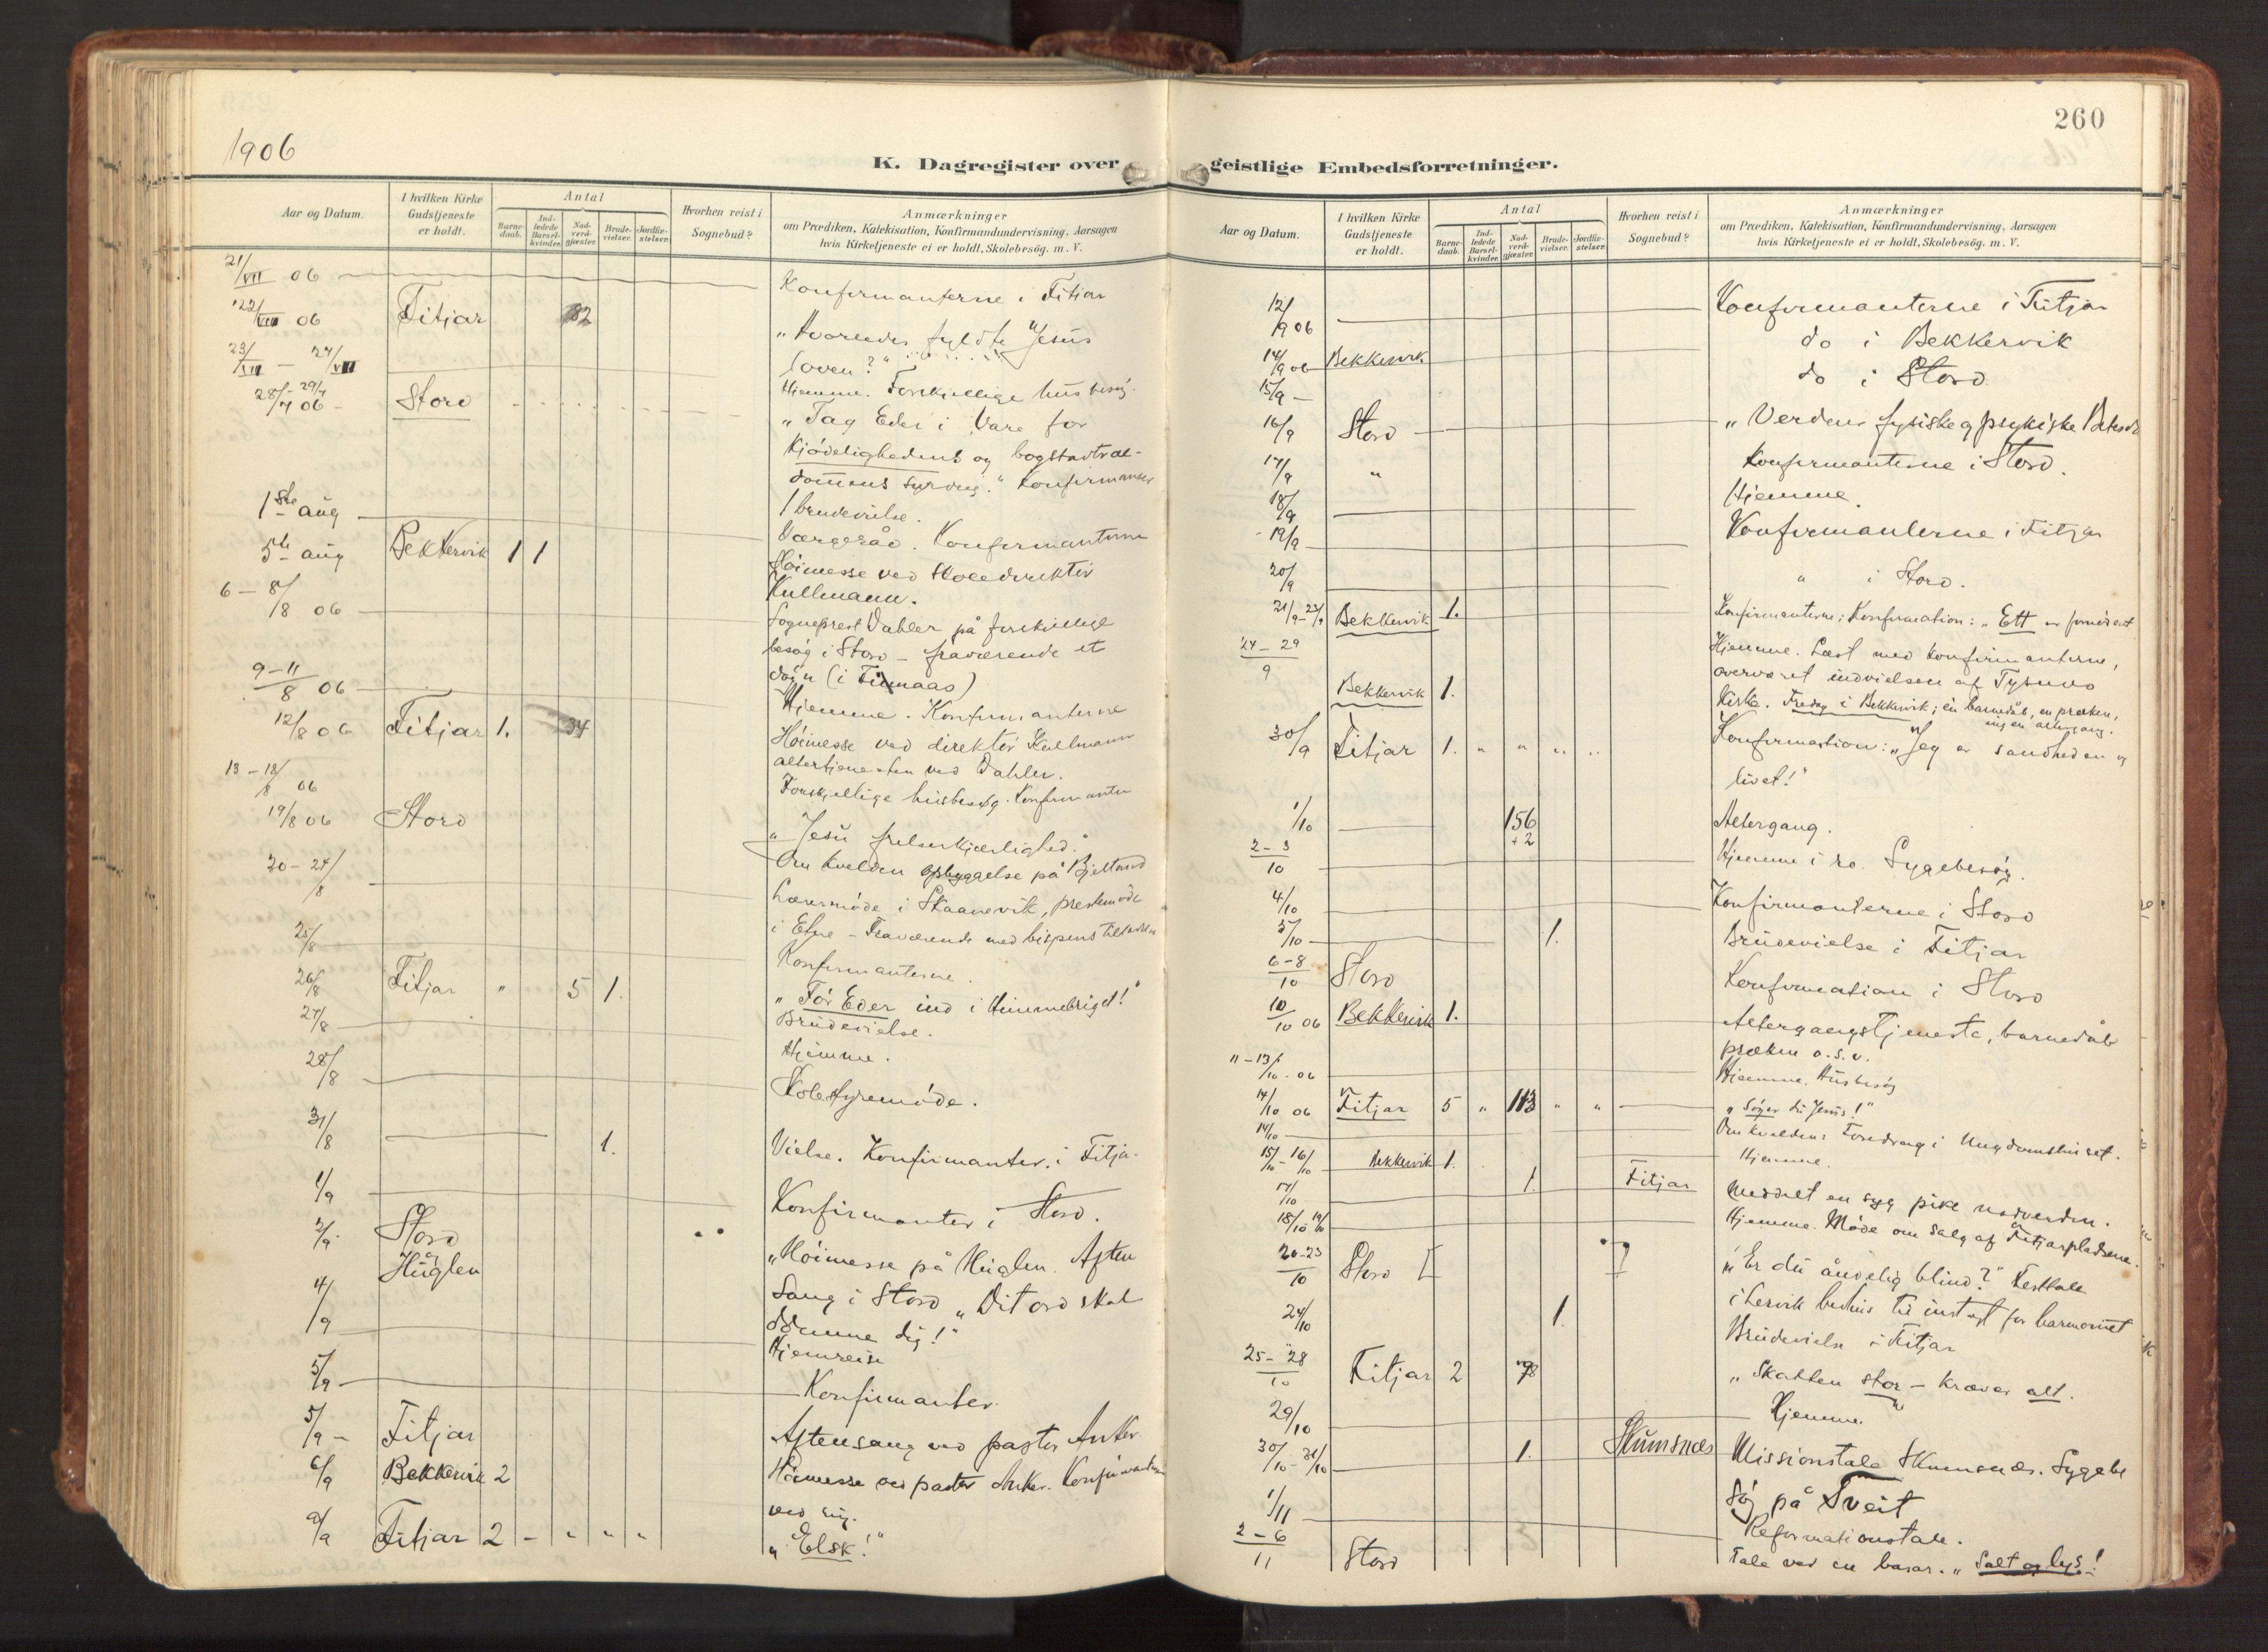 1906
K. Dagregister over
Aar og Datum.
I hvilken Kirke Gudstjeneste er holdt.
Antal
Barne-daab.
Ind-ledede Barsel-kvinder.
Nad-verd-gjæster.
Brude-vielser.
Jordfæ-stelser.
Hvorhen reist i Sognebud?
Anmærkninger
om Prædiken, Katekisation, Konfirmandundervisning, Aarsagen
hvis Kirketjeneste ei er holdt, Skolebesög. m. V.
21/VII 06 Konfirmanterne i Fitjar
22/VII 06 Fitjar 82 "Hvorledes fyldte Jesus
loven?"
23/VII — 24/VII Hjemme. Forskjellige husbesøg.
28/7 - 29/7 06 - Stord "Tag Eder i Vare for
kjødelighedens og bogstavtræl-
dommens surdeig." Konfirmanter
1 brudevielse.
1ste aug Værgeråd. Konfirmanterne
5te aug Bekkervik 1 1 Höimesse ved Skoledirektör
Kullmann.
6 — 8/8 06 Sogneprest Dahler på forskjellige
besög i Stord - fraværende et
dögn (i Finnaas)
9-11/8 06 Hjemme. Konfirmanterne
12/8 06 Fitjar 1. 34 Höimesse ved direktör Kullmann
altertjenesten ved Dahler.
13-18/8 06 Forskjellige husbesøg. Konfirmanter
19/8 06 Stord "Jesu frelserkjærlighed."
Om kvelden opbyggelse på
20-24/8 Lærermöde i Skaanevik, prestemöde
i Etne - Fraværende med bispens tilladelse
25/8 Konfirmanterne.
26/8 Fitjar " 5 1. "Før Eder ind i Himmelriget!"
Brudevielse.
27/8 Hjemme.
28/8 Skolestyremöde.
31/8 1. Vielse. Konfirmanter i Fitjar.
1/9 Konfirmanter i Stord.
2/9 Stord "Höimesse på Huglen. Aften
og
Huglen sang i Stord "Dit ord skal
dömme dig!"
4/9 Hjemreise
5/9 - Konfirmanter.
5/9 - Fitjar Aftensang ved pastor Anker
6/9 Bekkervik 2 Höimesse ved pastor Anker. Konfirmanterne
ved mig.
9/9 Fitjar 2 - " " " "Elsk!"
260
geistlige Embedsforretninger.
Aar og Datum.
I hvilken Kirke Gudstjeneste er holdt.
Antal
Barne-daab.
Ind-ledede Barsel-kvinder.
Nad-verd-gjæster.
Brude-vielser.
Jordfæ-stelser.
Hvorhen reist i Sognebud?
Anmærkninger
om Prædiken, Katekisation, Konfirmandundervisning, Aarsagen
hvis Kirketjeneste ei er holdt, Skolebesög. m. V.
12/9 06 Konfirmanterne i Fitjar
14/9 06 Bekkervik do i Bekkervik
15/9 - do i Stord
16/9 Stord "Verdens fysiske og psykiske
17/9 " Konfirmanterne i Stord.
18/9 Hjemme.
19/9 Konfirmanterne i Fitjar
20/9 " i Stord.
21/9 - 23/9 Bekkervik 1. Konfirmanterne; Konfirmation: "Ett er fornödent
24-29/9 Hjemme. Læst med konfirmanterne,
overværet indvielsen af Tysnes
Bekkervik 1. kirke. Fredag i Bekkervik; én barnedåb, en præken,
ingen altergang.
30/9 Fitjar 1. " " " " Konfirmation: "Jeg er sandheden og
livet!"
1/10 156 Altergang.
+2
2-3/10 Hjemme i ro. Sygebesög.
4/10 Konfirmanterne i Stord
5/10 1. Brudevielse i Fitjar
6-8/10 Stord Konfirmation i Stord
10/10 06 Bekkervik 1. Altergangstjeneste, barnedåb
præken o.s.v.
11-13/10 - 06 Hjemme. Husbesög
14/10 06 Fitjar 5 " 113 " " "Söger du Jesus!"
14/10 Om kvelden: Foredrag i Ungdomshuset.
15/10 - 16/10 Bekkervik 1. Hjemme.
17/10 1. Fitjar Meddelt en syg pike nadverden.
18/10 19/10 Hjemme. Möde om salg af Fitjarpladsene.
20-23/10 Stord "Er du åndelig blind?" Festtale
i Lervik bedehus til indtægt for
24/10 1. Brudevielse i Fitjar
25-28/10 Fitjar 2 78 "Skatten stor - kræver alt.
29/10 Hjemme
30/10 - 31/10 1. Skumsnes Missionstale Skumsnes. Sygebe
søg på Tveit
1/11 Reformationstale.
2-6/11 Stord Tale ved en basar. "Salt og lys!